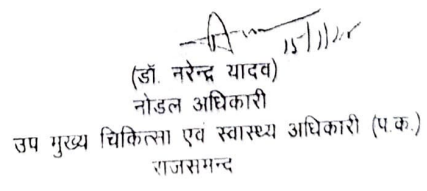 (डॉ. नरेन्द्र यादव)
नोडल अधिकारी
उप मुख्य चिकित्सा एवं स्वास्थ्य अधिकारी (प.क.)
राजसमन्द